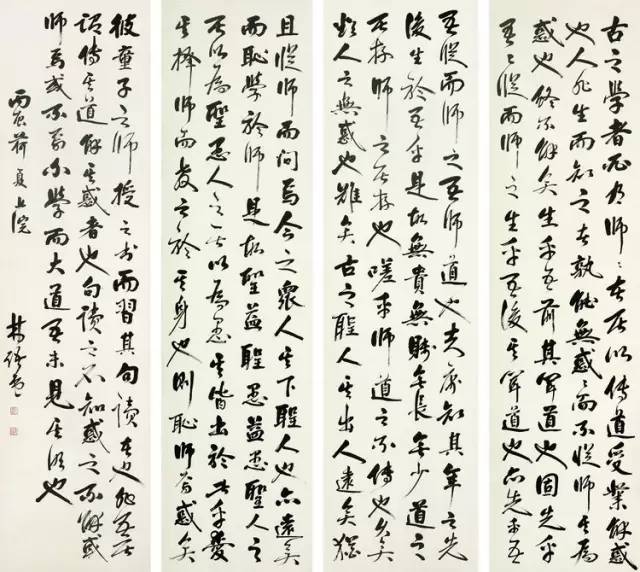 古之學者必有師々者所以傳道受業解惑
也人非生而知之者孰能無惑々而不從師其為
惑也終不解矣生乎吾前其聞道也固先乎
吾々從而師之生乎吾後其聞道也亦先乎吾
吾從而師之吾師道也夫庸知其年之先
後生於吾乎是故無貴無賤無長無少道之
所存師之所存也嗟乎師道之不傳也久矣
欲人之無惑也難矣古之聖人其出人遠矣猶
且從師而問焉今之眾人其下聖人也亦遠矣
而恥學於師是故聖益聖愚益愚聖人之
所以為聖愚人之所以為愚其皆出於此乎愛
其擇師而教之於其身也則恥師焉惑矣
彼童子之師授之書而習其句讀者也非吾所
謂傳其道解其惑者也句讀之不知惑之不解或
師焉或不焉小學而大道吾未見其明也
丙辰荷夏上浣